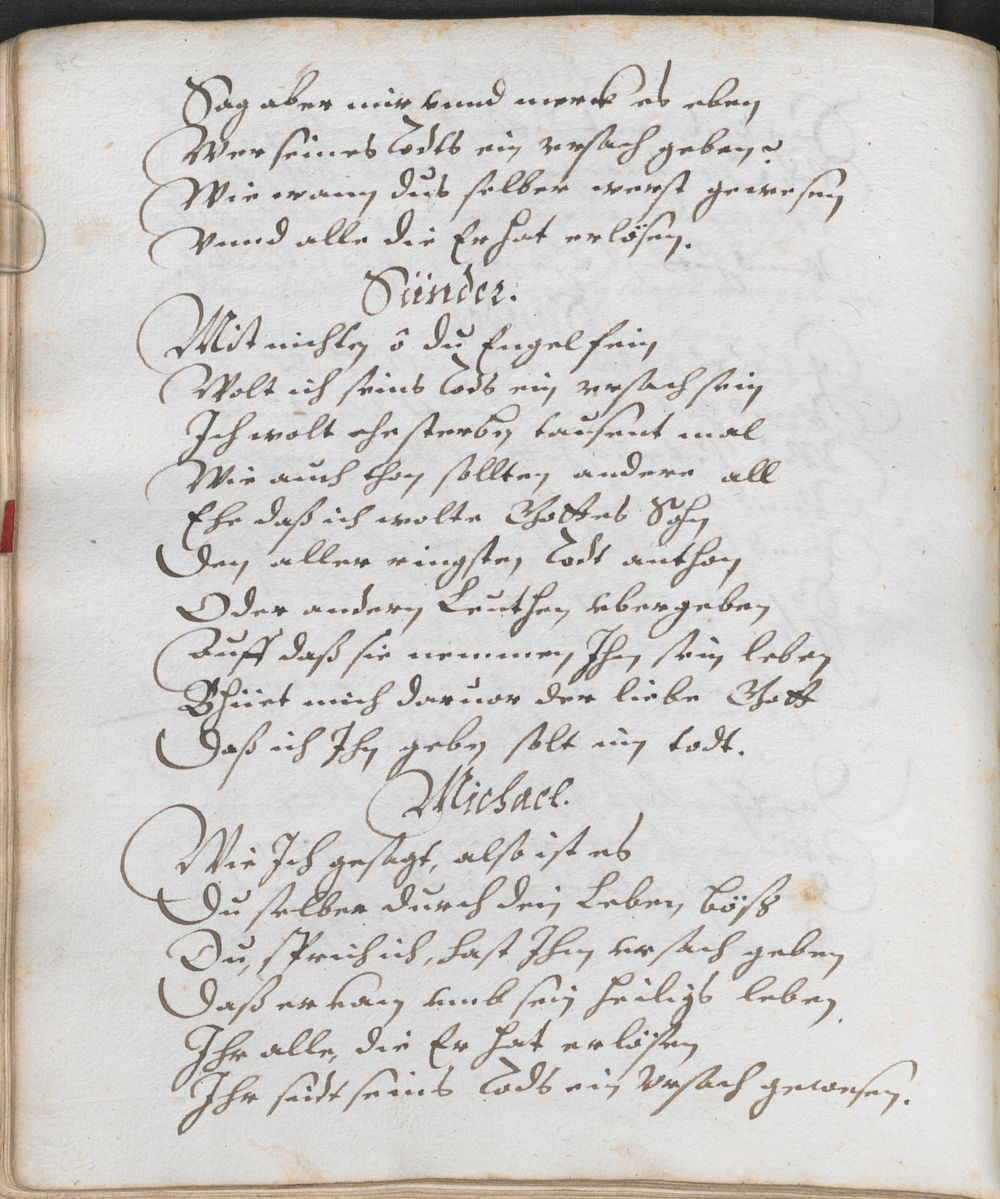 Sag aber mir vnnd merck es eben
Wer seines Todts ein vrsach geben?
Wie wann dus selber werst gewesen
Vnnd alle die Er hat erlösen.
Sünder.
Mit nichten ô du Engel fein
Wolt ich seins Tods ein vrsach sein
Ich wolt ehe sterben tausent mal
Wie auch thon sollten andere all
Ehe daß ich wolte Gottes Sohn
Den aller ringsten Todt anthon
Oder andern Leuthen vbergeben
Auff daß sie nemmen Ihm sein leben
Bhüet mich daruor der liebe Gott
Daß ich Ihn geben solt inn todt.
Michael.
Wie Ich gesagt, also ist es
Du selber durch dein Leben böß
Du, sprich ich, hast Ihm vrsach geben
Daß er kam vmb sein heiligs leben
Ihr alle, die Er hat erlösen
Ihr seidt seins Tods ein Vrsach gewesen.